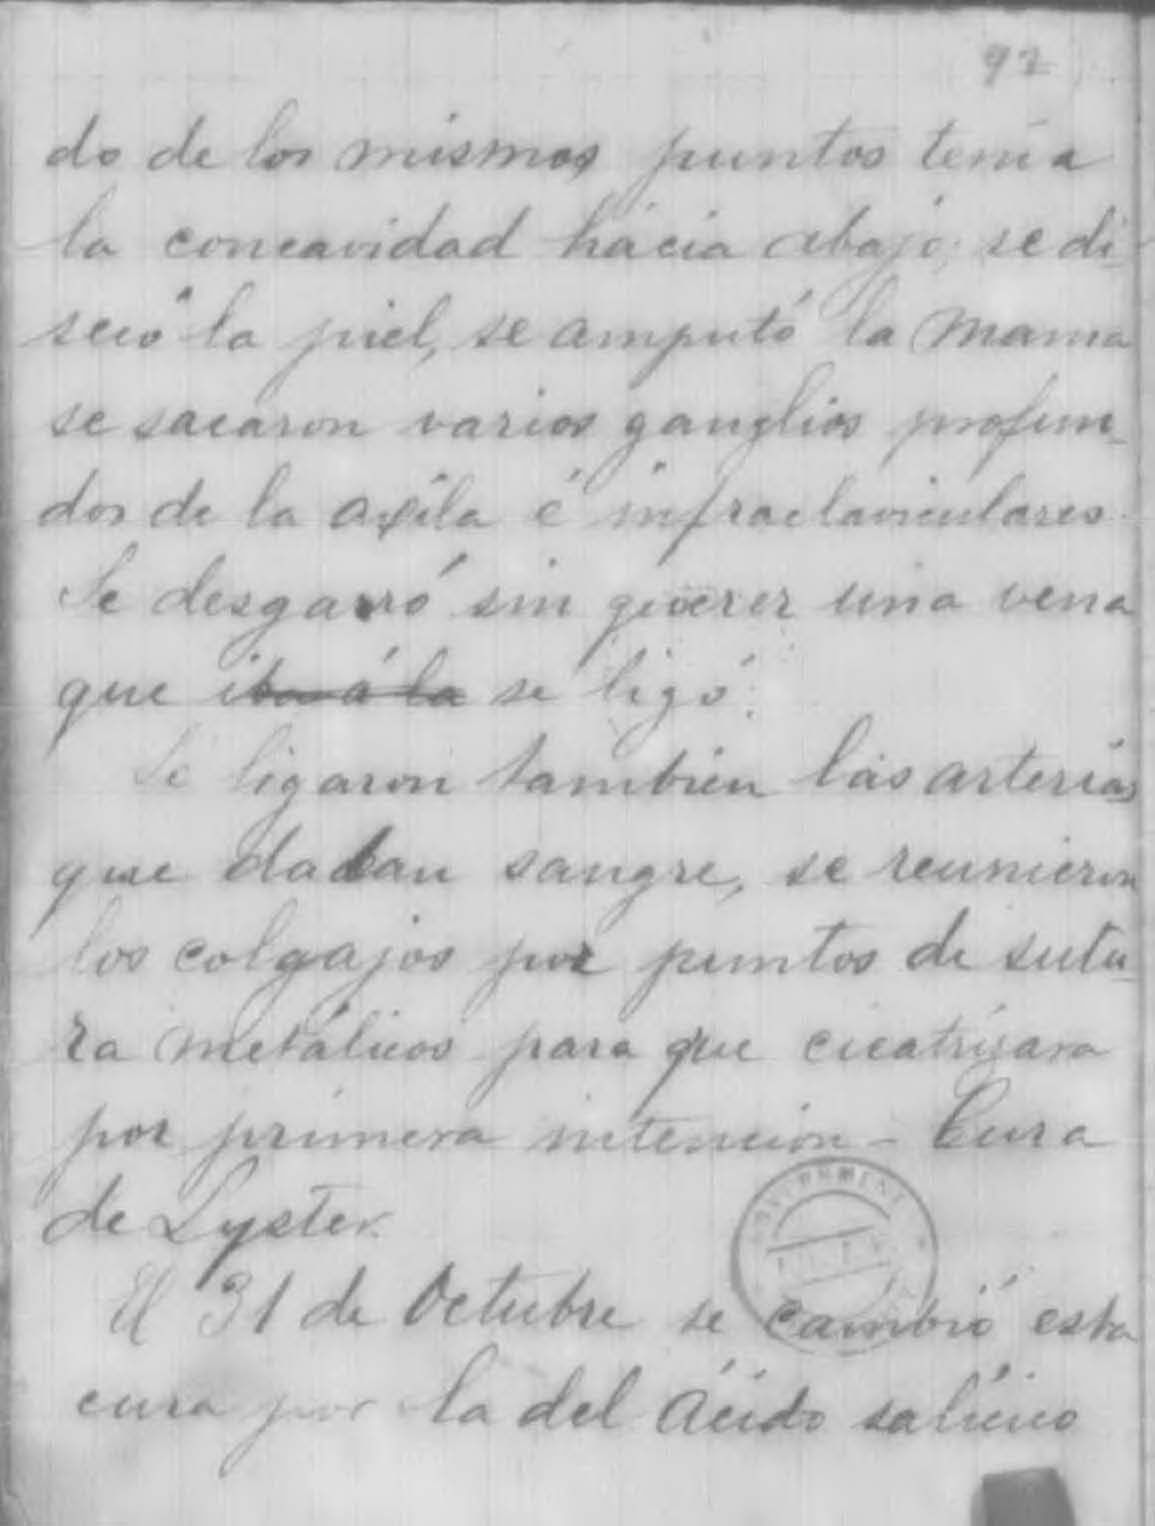 92
do de los mismos puntos tenia
la concavidad hácia abajo; se di-
secó la piel, se amputó la Mama
se sacaron varios ganglios profun-
dos de la axila é infraclaviculares.
Se desgarró sin querer una vena
que iba á la se ligó.
Se ligaron tambien las arterias
que daban sangre, se reunieron
los colgajos por puntos de sutu-
ra metálicos para que cicatrizara
por primera intencion - Cura
de Lyster.
El 31 de Octubre se cambió esta
cura por la del Ácido salicico